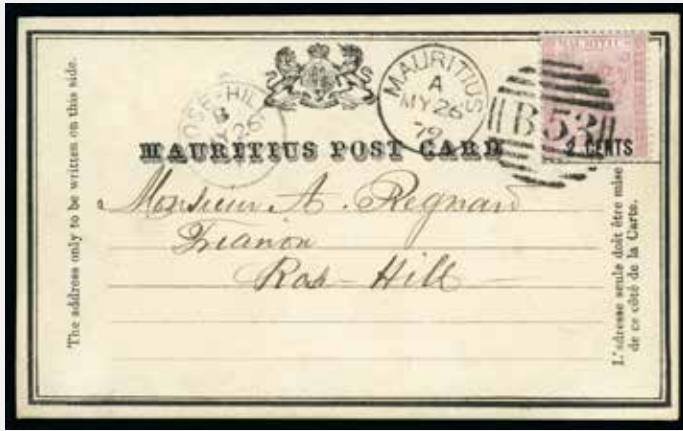 The address only to be written on this side.
MAURITIUS
A
MY 26
79
ROSE-HILL
B
MY 26
B53
MAURITIUS
2 CENTS
MAURITIUS POST CARD
Monsieur A. Regnard
Trianon
Rose-Hill
L'adresse seule doit être mise
de ce côté de la Carte.